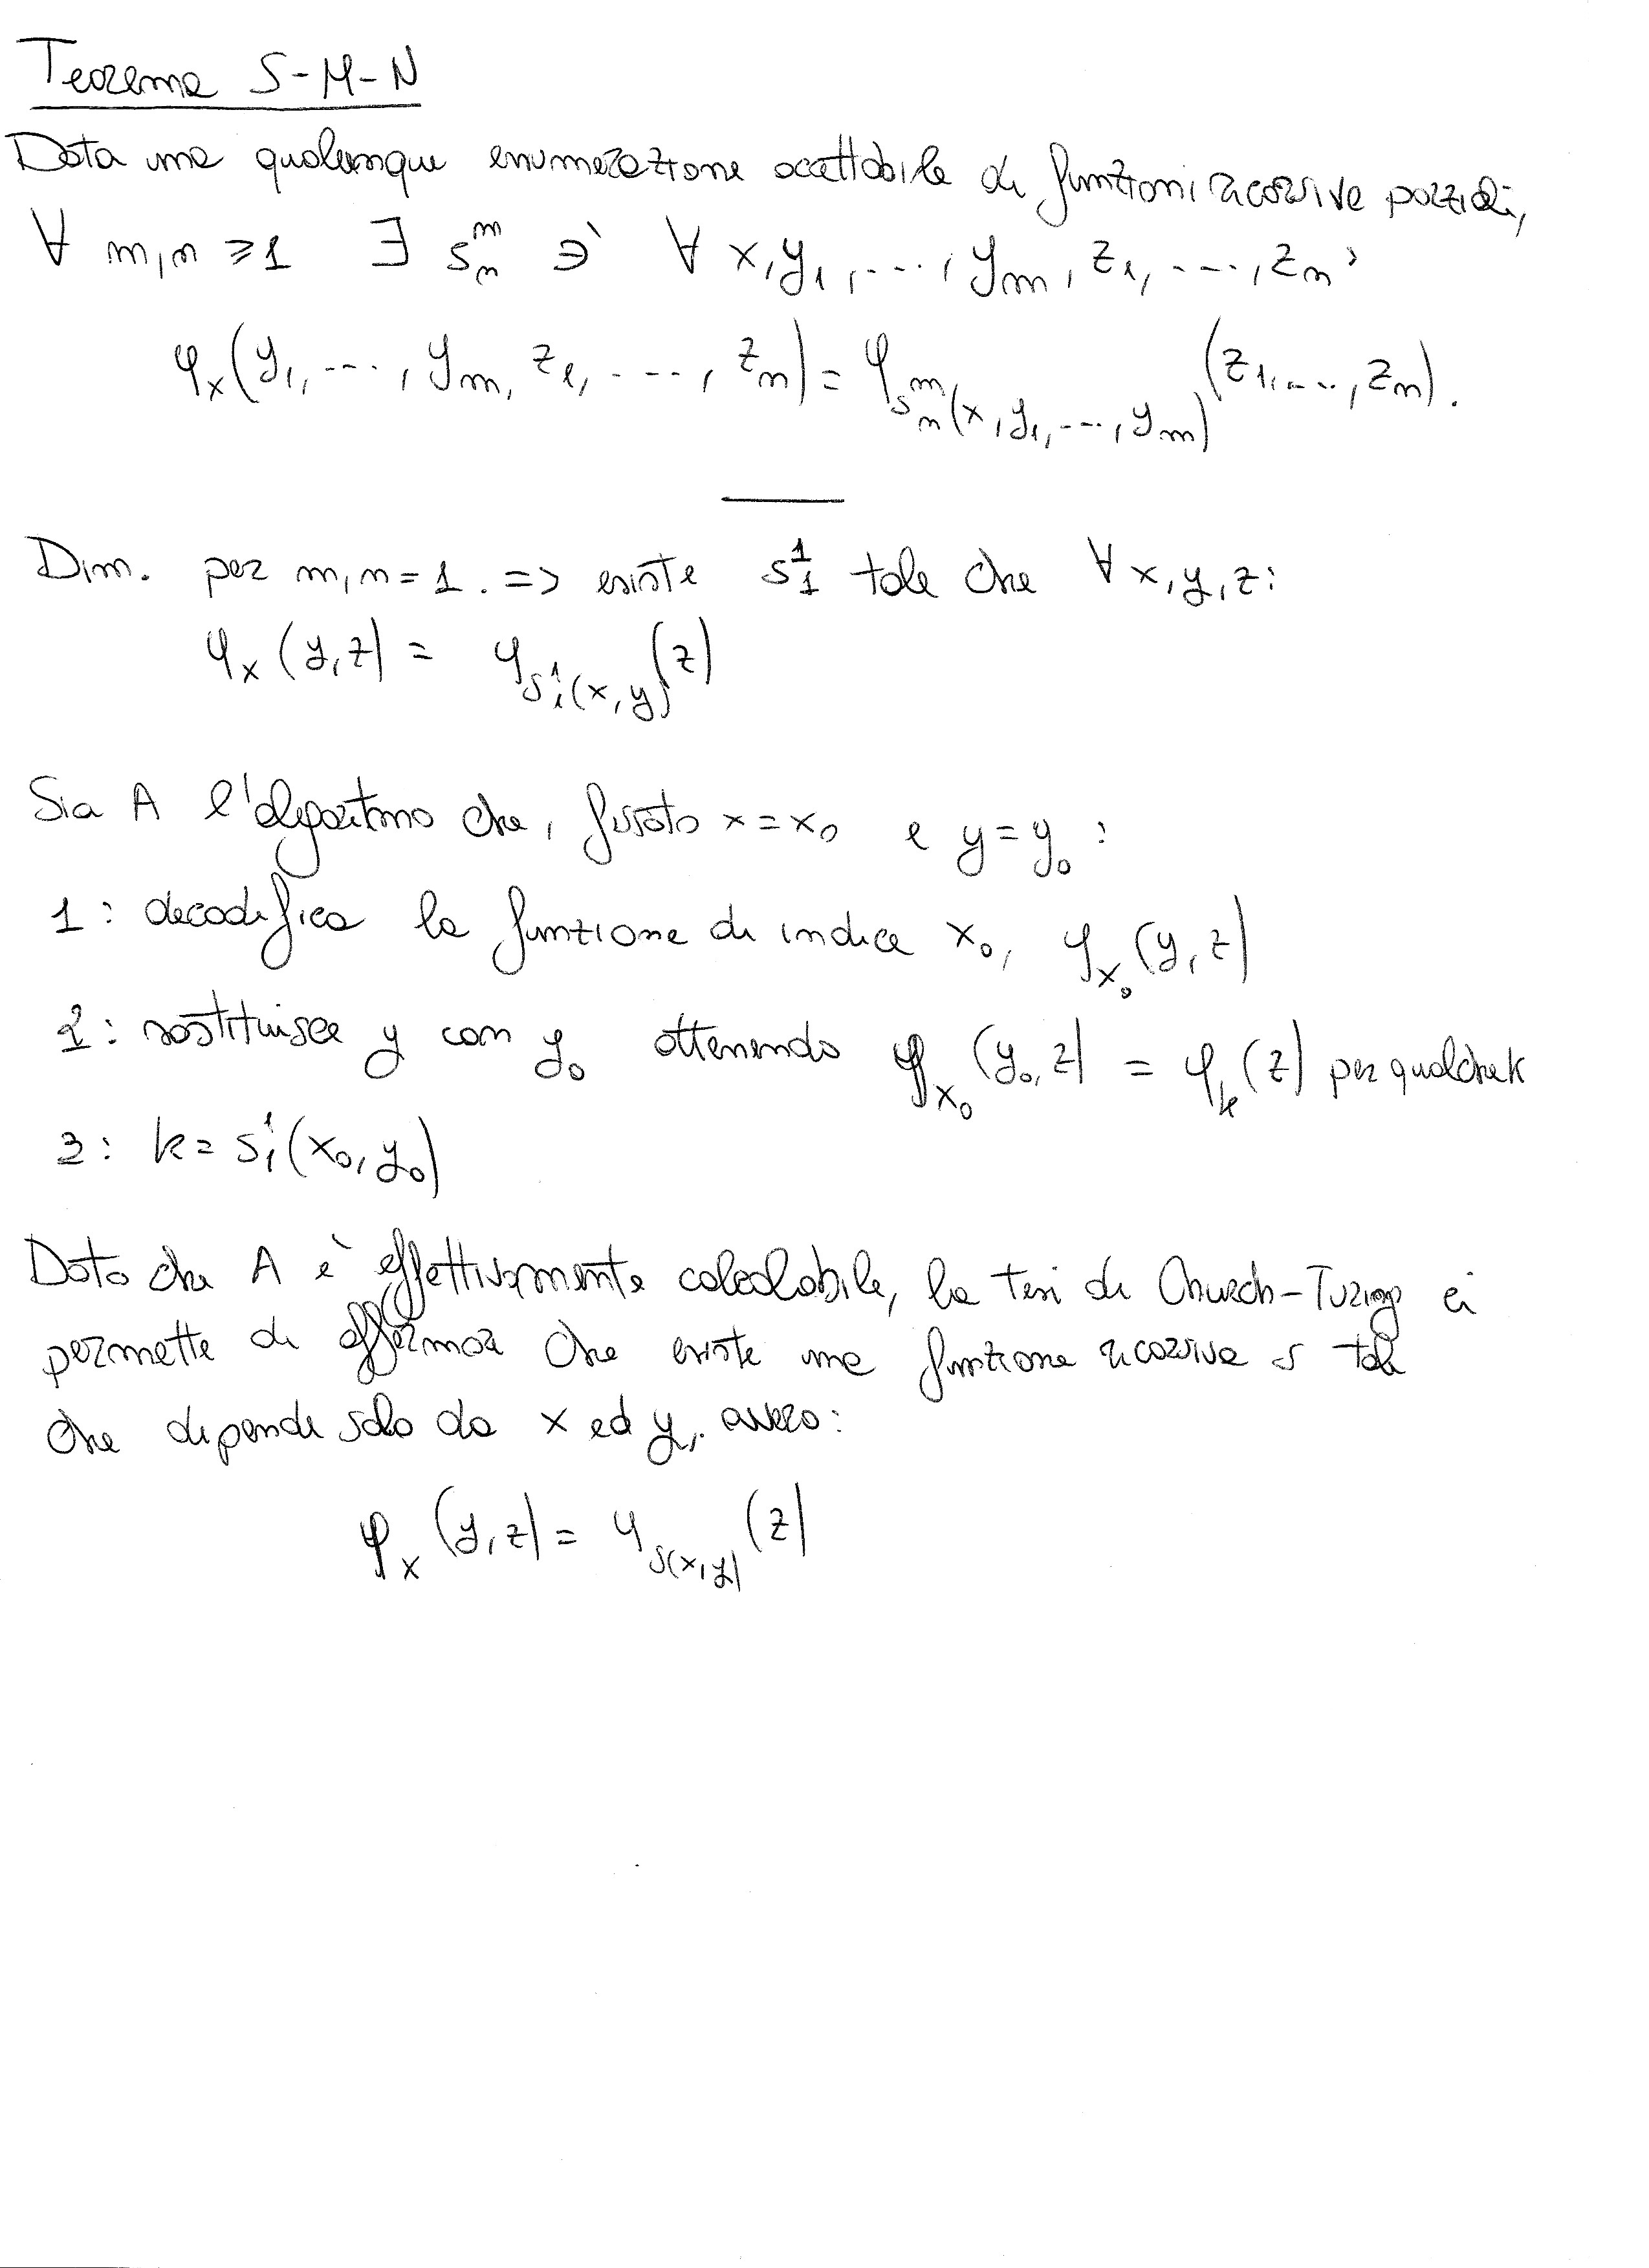 Teorema S-M-N
Data una qualunque enumerazione accettabile di funzioni ricorsive parziali,
∀ m,n ≥ 1 ∃ s^m_n ∋' ∀ x, y_1, ..., y_m, z_1, ..., z_n :
φ_x(y_1, ..., y_m, z_1, ..., z_n) = φ_{s^m_n(x, y_1, ..., y_m)}(z_1, ..., z_n).
Dim. per m,n = 1. => esiste s^1_1 tale che ∀ x,y,z:
φ_x(y,z) = φ_{s^1_1(x,y)}(z)
Sia A l'algoritmo che, fissato x = x_0 e y = y_0 :
1: decodifica la funzione di indice x_0, φ_{x_0}(y,z)
2: sostituisce y con y_0 ottenendo φ_{x_0}(y_0,z) = φ_k(z) per qualche k
3: k = s^1_1(x_0,y_0)
Dato che A è effettivamente calcolabile, la tesi di Church-Turing ci
permette di affermare che esiste una funzione ricorsiva s tale
che dipende solo da x ed y, ovvero:
φ_x(y,z) = φ_{s(x,y)}(z)